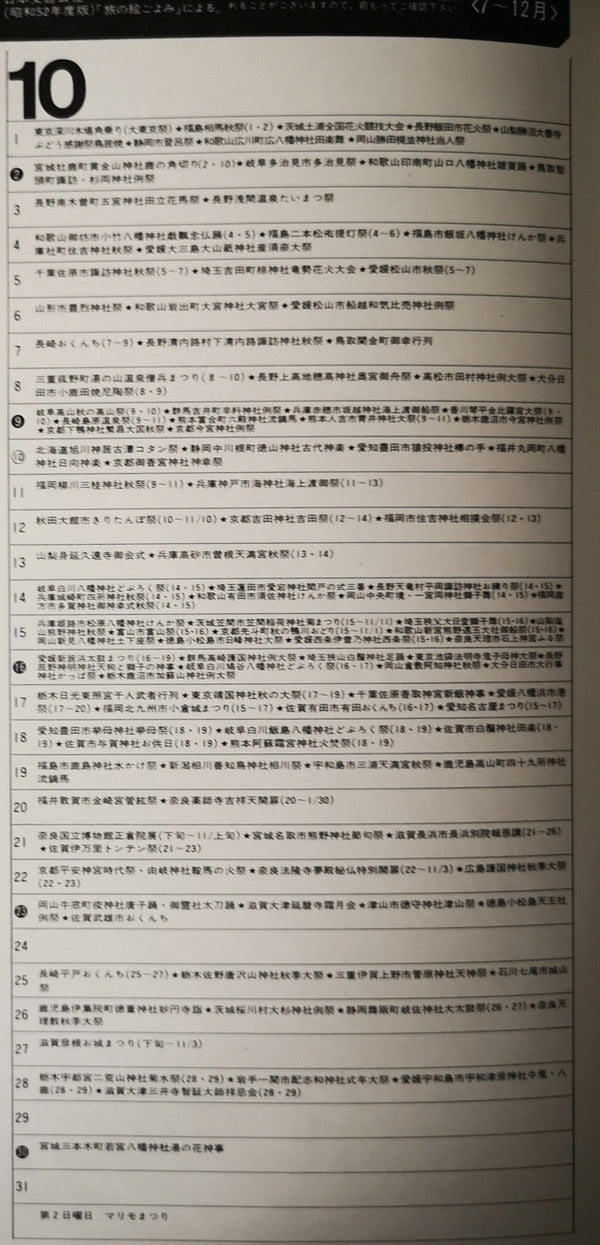 (昭和52年度版)「旅の絵ごよみ」による。れることがございますので、前もってご確認下さい。〈7〜12月〉
10
1 東京深川木場角乗り(大東京祭)★福島相馬秋祭(1・2)★茨城土浦全国花火競技大会★長野飯田市花火祭★山梨勝沼大善寺
ぶどう感謝祭鳥居焼★静岡市登呂祭★和歌山広川町広八幡神社田楽舞★岡山勝田梶並神社当人祭
2 宮城牡鹿町黄金山神社鹿の角切り(2・10)★岐阜多治見市多治見祭★和歌山印南町山口八幡神社雑賀踊★鳥取智
頭町諏訪・杉両神社例祭
3 長野南木曽町五宮神社田立花馬祭★長野浅間温泉たいまつ祭
4 和歌山御坊市小竹八幡神社戯瓢念仏踊(4・5)★福島二本松市提灯祭(4〜6)★福島市飯坂八幡神社けんか祭★兵
庫社町住吉神社秋祭★愛媛大三島大山祇神社産須奈大祭
5 千葉佐原市諏訪神社秋祭(5〜7)★埼玉吉田町椋神社竜勢花火大会★愛媛松山市秋祭(5〜7)
6 山形市豊烈神社祭★和歌山岩出町大宮神社大宮祭★愛媛松山市船越和気比売神社例祭
7 長崎おくんち(7〜9)★長野清内路村下清内路諏訪神社秋祭★鳥取関金町御幸行列
8 三重菰野町湯の山温泉僧兵まつり(8〜10)★長野上高地穂高神社奥宮御舟祭★高松市田村神社例大祭★大分日
田市小鹿田焼尼陶祭(8・9)
9 岐阜高山秋の高山祭(9・10)★群馬吉井町辛科神社例祭★兵庫赤穂市坂越神社海上渡御船祭★香川琴平金比羅宮大祭(9・
10)★長崎島原温泉祭(9〜11)★熊本富合町六殿神社流鏑馬★熊本人吉市青井神社大祭(9〜11)★栃木鹿沼市今宮神社例祭
★京都下鴨神社繁昌大国秋祭★京都今宮神社例祭
10 北海道旭川神居古潭コタン祭★静岡中川根町徳山神社古代神楽★愛知豊田市猿投神社棒の手★福井丸岡町八幡
神社日向神楽★京都御香宮神社神幸祭
11 福岡柳川三柱神社秋祭(9〜11)★兵庫神戸市海神社海上渡御祭(11〜13)
12 秋田大館市きりたんぽ祭(10〜11/10)★京都吉田神社吉田祭(12〜14)★福岡市住吉神社相撲会祭(12・13)
13 山梨身延久遠寺御会式★兵庫高砂市曽根天満宮秋祭(13・14)
14 岐阜白川八幡神社どぶろく祭(14・15)★埼玉蓮田市愛宕神社閏戸の式三番★長野天竜村平岡諏訪神社お練り祭(14・15)★
兵庫城崎町四所神社秋祭(14・15)★和歌山有田市須佐神社けんか祭★岡山中央町境・一宮両神社獅子舞(14・15)★福岡直
方市多賀神社御神幸式秋祭(14・15)
15 兵庫姫路市松原八幡神社けんか祭★茨城笠間市笠間稲荷神社菊まつり(15〜11/11)★埼玉秩父大日堂獅子舞(15・16)★山梨塩
山熊野神社秋祭★富山市富山祭(15・16)★京都先斗町秋の鴨川おどり(15〜11/1)★和歌山新宮熊野速玉大社御船祭(15・16)★
岡山新見八幡神社土下座祭★徳島小松島市日峰神社大祭★愛媛西条伊曽乃神社西条祭(15・16)★奈良天理市石上神宮ふる祭
16 愛媛新居浜太鼓まつり(16〜19)★群馬高崎護国神社例大祭★埼玉狭山白鬚神社足踊★東京池袋法明寺鬼子母神大祭★長野
辰野神明神社天狗と獅子の神事★岐阜白川鳩谷八幡神社どぶろく祭(16・17)★岡山倉敷阿知神社秋祭★大分日田市大行事
神社かっぱ祭★栃木鹿沼市加蘇山神社例大祭
17 栃木日光東照宮千人武者行列★東京靖国神社秋の大祭(17〜19)★千葉佐原香取神宮新飯神事★愛媛八幡浜市港
祭(17〜20)★福岡北九州市小倉城まつり(15〜17)★佐賀有田市有田おくんち(16・17)★愛知名古屋まつり(15〜17)
18 愛知豊田市挙母神社挙母祭(18・19)★岐阜白川飯島八幡神社どぶろく祭(18・19)★佐賀市白鬚神社田楽(18・
19)★佐賀市与賀神社お供日(18・19)★熊本阿蘇霜宮神社火焚祭(18・19)
19 福島市鹿島神社水かけ祭★新潟相川善知鳥神社相川祭★宇和島市三浦天満宮秋祭★鹿児島高山町四十九所神社
流鏑馬
20 福井敦賀市金崎宮管絃祭★奈良薬師寺吉祥天開扉(20〜1/30)
21 奈良国立博物館正倉院展(下旬〜11/上旬)★宮城名取市熊野神社菊句祭★滋賀長浜市長浜別院報恩講(21〜26)
★佐賀伊万里トンテン祭(21〜23)
22 京都平安神宮時代祭・由岐神社鞍馬の火祭★奈良法隆寺夢殿秘仏特別開扉(22〜11/3)★広島護国神社秋季大祭
(22・23)
23 岡山牛窓町疫神社唐子踊・御霊社太刀踊★滋賀大津延暦寺霜月会★津山市徳守神社津山祭★徳島小松島天王社
例祭★佐賀武雄市おくんち
24
25 長崎平戸おくんち(25〜27)★栃木佐野唐沢山神社秋季大祭★三重伊賀上野市菅原神社天神祭★石川七尾市城山
祭
26 鹿児島伊集院町徳重神社妙円寺詣★茨城桜川村大杉神社例祭★静岡舞阪町岐佐神社大太鼓祭(26・27)★奈良天
理教秋季大祭
27 滋賀彦根お城まつり(下旬〜11/3)
28 栃木宇都宮二荒山神社菊水祭(28・29)★岩手一関市配志和神社式年大祭★愛媛宇和島市宇和津彦神社牛鬼・八
鹿(28・29)★滋賀大津三井寺智証大師祥忌会(28・29)
29
30 宮城三本木町若宮八幡神社湯の花神事
31
第2日曜日 マリモまつり